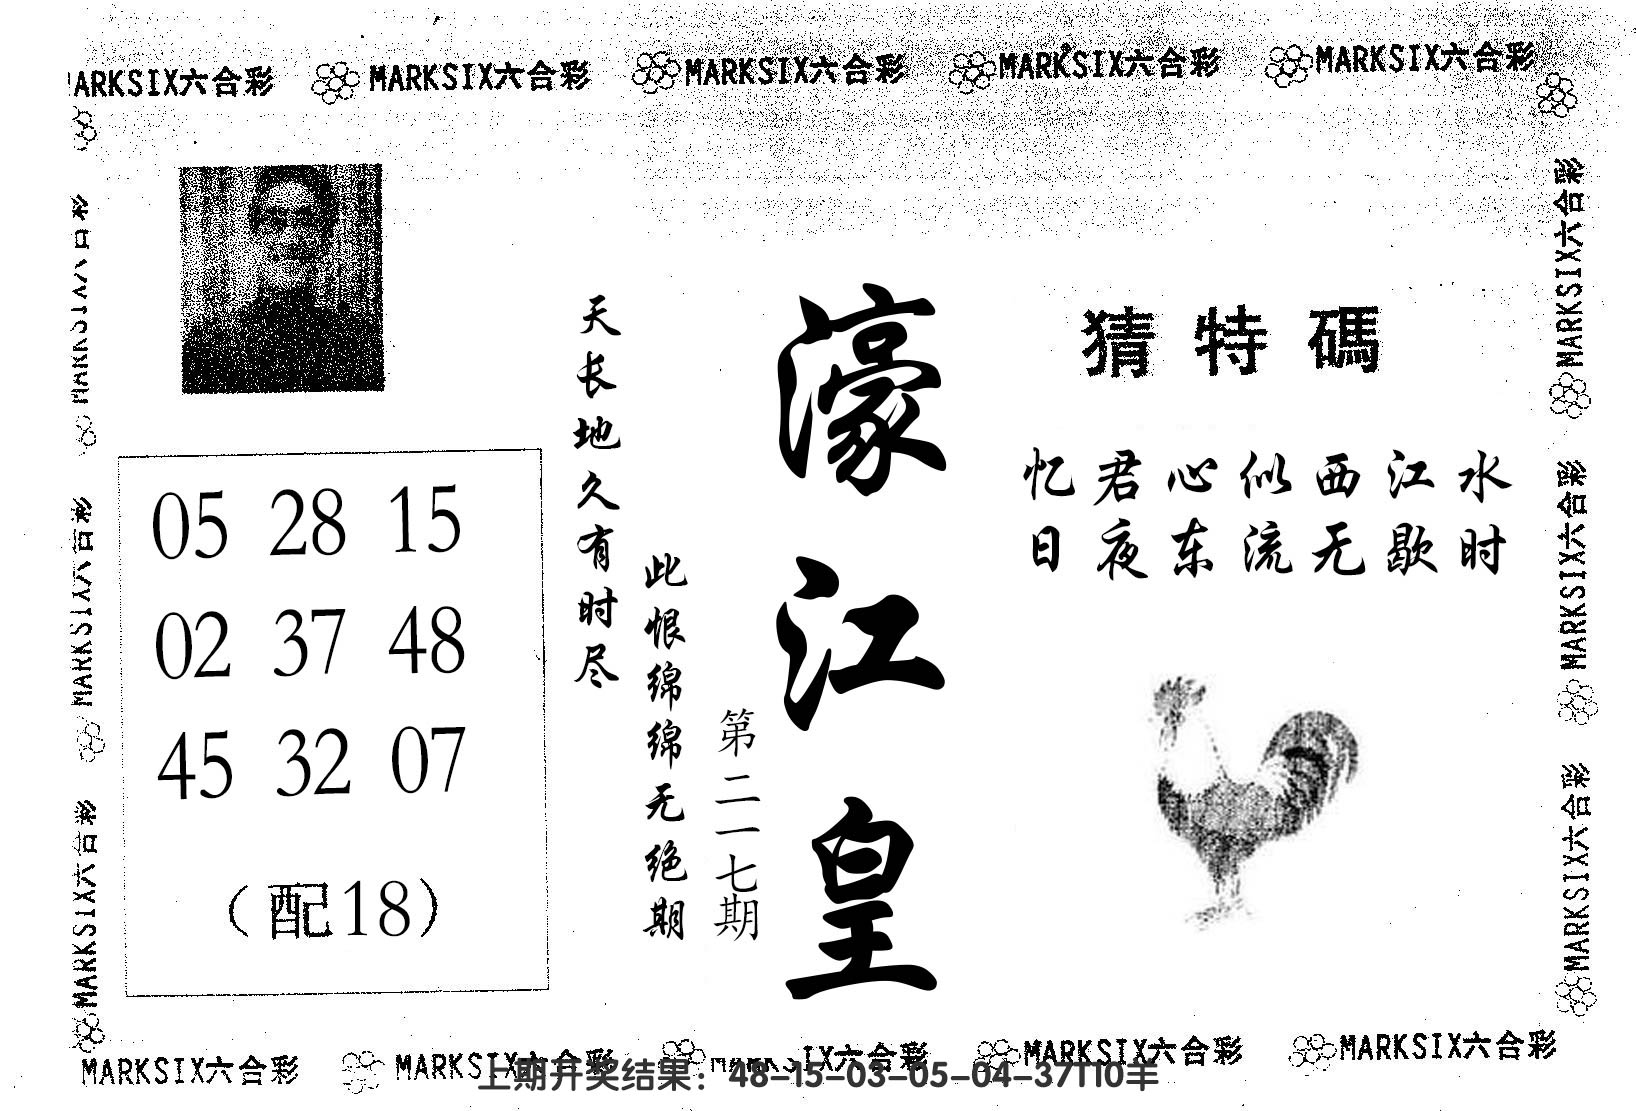 MARKSIX六合彩 MARKSIX六合彩 MARKSIX六合彩 MARKSIX六合彩 MARKSIX六合彩
猜特碼
忆君心似西江水
日夜东流无歇时
濠江皇
第二一七期
天长地久有时尽
此恨绵绵无绝期
05 28 15
02 37 48
45 32 07
（配18）
MARKSIX六合彩
MARKSIX六合彩
MARKSIX六合彩
MARKSIX六合彩
MARKSIX六合彩
MARKSIX六合彩
MARKSIX六合彩 MARKSIX六合彩 MARKSIX六合彩 MARKSIX六合彩 MARKSIX六合彩
上期开奖结果：48-15-03-05-04-37T10羊